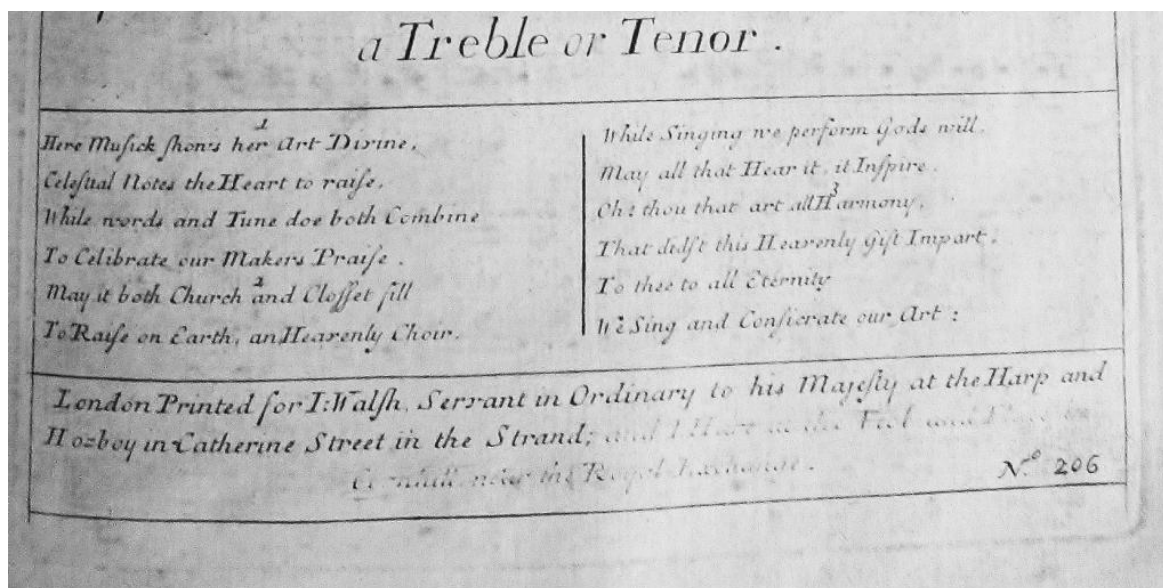 a Treble or Tenor.
1
Here Musick shows her Art Divine,
Celestial Notes the Heart to raise,
While words and Tune doe both Combine
To Celibrate our Makers Praise.
2
May it both Church and Closset fill
To Raise on Earth, an Heavenly Choir.
While Singing we perform Gods will,
May all that Hear it, it Inspire.
3
Oh: thou that art all Harmony,
That didst this Heavenly Gift Impart,
To thee to all Eternity
We Sing and Consicrate our Art:
London Printed for I: Walsh, Servant in Ordinary to his Majesty at the Harp and
Hoboy in Catherine Street in the Strand; and I Hare at the Viol and Flute in
Cornhill near the Royal Exchange.
No. 206